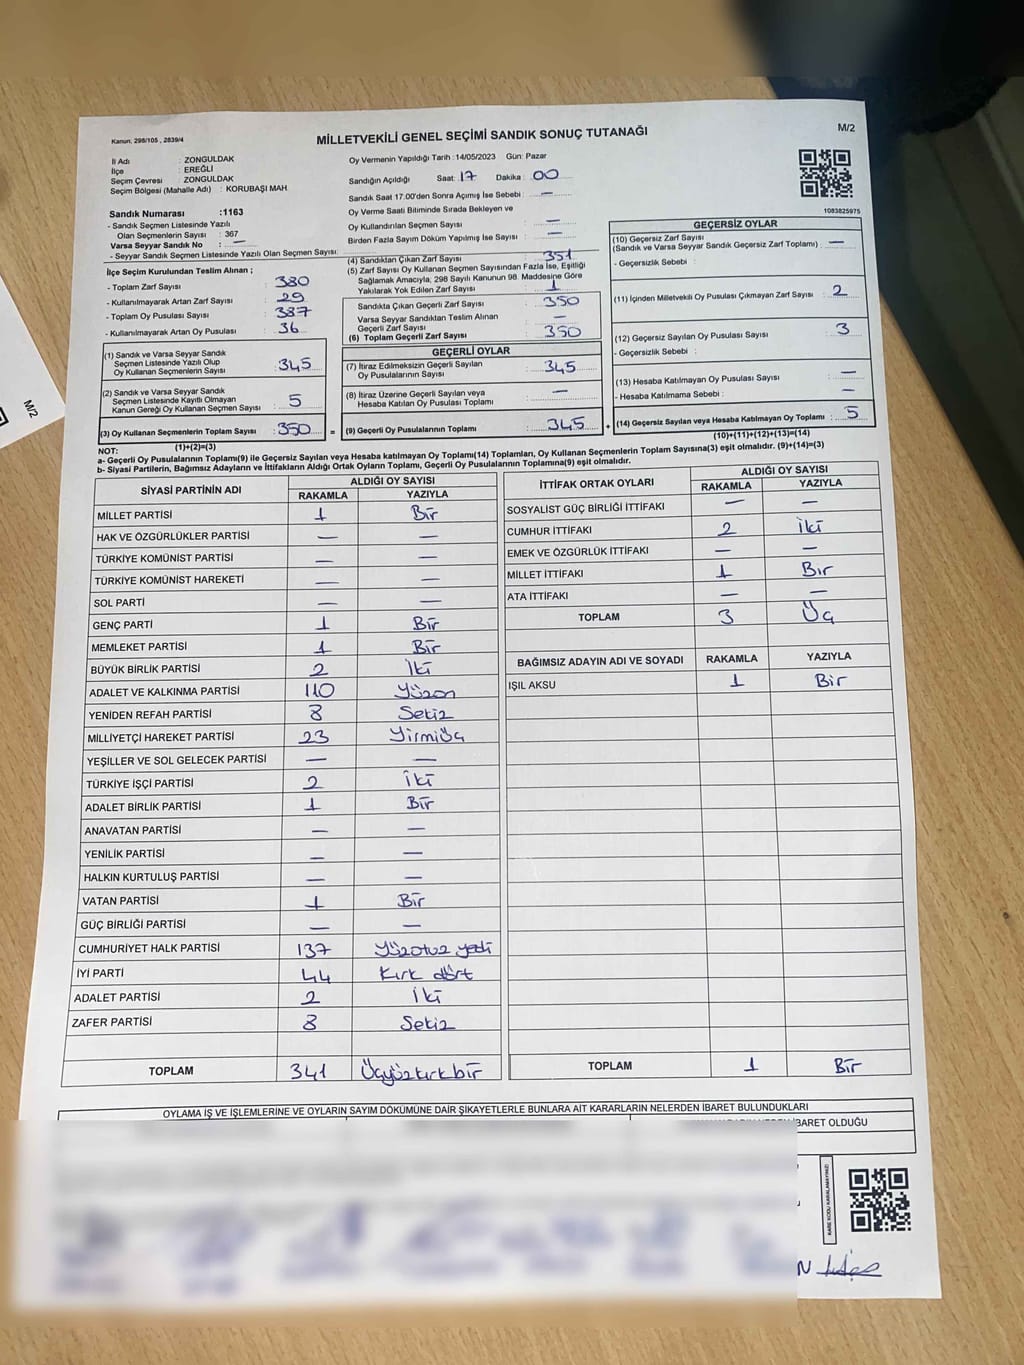 Kanun, 298/105 , 2839/4
MİLLETVEKİLİ GENEL SEÇİMİ SANDIK SONUÇ TUTANAĞI
M/2
İl Adı : ZONGULDAK
İlçe : EREĞLİ
Seçim Çevresi : ZONGULDAK
Seçim Bölgesi (Mahalle Adı) : KORUBAŞI MAH.
Sandık Numarası :1163
- Sandık Seçmen Listesinde Yazılı
Olan Seçmenlerin Sayısı : 367
Varsa Seyyar Sandık No : —
- Seyyar Sandık Seçmen Listesinde Yazılı Olan Seçmen Sayısı:
İlçe Seçim Kurulundan Teslim Alınan ;
- Toplam Zarf Sayısı : 380
- Kullanılmayarak Artan Zarf Sayısı : 29
- Toplam Oy Pusulası Sayısı : 387
- Kullanılmayarak Artan Oy Pusulası : 36
(1) Sandık ve Varsa Seyyar Sandık
Seçmen Listesinde Yazılı Olup
Oy Kullanan Seçmenlerin Sayısı : 345
(2) Sandık ve Varsa Seyyar Sandık
Seçmen Listesinde Kayıtlı Olmayan
Kanun Gereği Oy Kullanan Seçmen Sayısı : 5
(3) Oy Kullanan Seçmenlerin Toplam Sayısı : 350
(1)+(2)=(3)
Oy Vermenin Yapıldığı Tarih :14/05/2023 Gün: Pazar
Sandığın Açıldığı Saat: 17 Dakika : 00
Sandık Saat 17.00'den Sonra Açımış İse Sebebi : —
Oy Verme Saati Bitiminde Sırada Bekleyen ve
Oy Kullandırılan Seçmen Sayısı : —
Birden Fazla Sayım Döküm Yapılmış İse Sayısı : —
(4) Sandıktan Çıkan Zarf Sayısı : 351
(5) Zarf Sayısı Oy Kullanan Seçmen Sayısından Fazla İse, Eşitliği
Sağlamak Amacıyla, 298 Sayılı Kanunun 98. Maddesine Göre
Yakılarak Yok Edilen Zarf Sayısı : 1
Sandıkta Çıkan Geçerli Zarf Sayısı : 350
Varsa Seyyar Sandıktan Teslim Alınan
Geçerli Zarf Sayısı : —
(6) Toplam Geçerli Zarf Sayısı : 350
GEÇERLİ OYLAR
(7) İtiraz Edilmeksizin Geçerli Sayılan
Oy Pusulalarının Sayısı : 345
(8) İtiraz Üzerine Geçerli Sayılan veya
Hesaba Katılan Oy Pusulası Toplamı : —
= (9) Geçerli Oy Pusulalarının Toplamı : 345
1083825975
GEÇERSİZ OYLAR
(10) Geçersiz Zarf Sayısı
(Sandık ve Varsa Seyyar Sandık Geçersiz Zarf Toplamı) : —
- Geçersizlik Sebebi :
(11) İçinden Milletvekili Oy Pusulası Çıkmayan Zarf Sayısı : 2
(12) Geçersiz Sayılan Oy Pusulası Sayısı : 3
- Geçersizlik Sebebi :
(13) Hesaba Katılmayan Oy Pusulası Sayısı : —
- Hesaba Katılmama Sebebi : —
+ (14) Geçersiz Sayılan veya Hesaba Katılmayan Oy Toplamı : 5
(10)+(11)+(12)+(13)=(14)
NOT:
a- Geçerli Oy Pusulalarının Toplamı(9) ile Geçersiz Sayılan veya Hesaba Katılmayan Oy Toplamı(14) Toplamları, Oy Kullanan Seçmenlerin Toplam Sayısına(3) eşit olmalıdır. (9)+(14)=(3)
b- Siyasi Partilerin, Bağımsız Adayların ve İttifakların Aldığı Ortak Oyların Toplamı, Geçerli Oy Pusulalarının Toplamına(9) eşit olmalıdır.
SİYASİ PARTİNİN ADI ALDIĞI OY SAYISI
RAKAMLA YAZIYLA
MİLLET PARTİSİ 1 Bir
HAK VE ÖZGÜRLÜKLER PARTİSİ — —
TÜRKİYE KOMÜNİST PARTİSİ — —
TÜRKİYE KOMÜNİST HAREKETİ — —
SOL PARTİ — —
GENÇ PARTİ 1 Bir
MEMLEKET PARTİSİ 1 Bir
BÜYÜK BİRLİK PARTİSİ 2 İki
ADALET VE KALKINMA PARTİSİ 110 Yüzon
YENİDEN REFAH PARTİSİ 8 Sekiz
MİLLİYETÇİ HAREKET PARTİSİ 23 Yirmiüç
YEŞİLLER VE SOL GELECEK PARTİSİ — —
TÜRKİYE İŞÇİ PARTİSİ 2 İki
ADALET BİRLİK PARTİSİ 1 Bir
ANAVATAN PARTİSİ — —
YENİLİK PARTİSİ — —
HALKIN KURTULUŞ PARTİSİ — —
VATAN PARTİSİ 1 Bir
GÜÇ BİRLİĞİ PARTİSİ — —
CUMHURİYET HALK PARTİSİ 137 Yüzotuz yedi
İYİ PARTİ 44 Kırk dört
ADALET PARTİSİ 2 İki
ZAFER PARTİSİ 8 Sekiz
TOPLAM 341 Üçyüzkırkbir
İTTİFAK ORTAK OYLARI ALDIĞI OY SAYISI
RAKAMLA YAZIYLA
SOSYALIST GÜÇ BİRLİĞİ İTTİFAKI — —
CUMHUR İTTİFAKI 2 İki
EMEK VE ÖZGÜRLÜK İTTİFAKI — —
MİLLET İTTİFAKI 1 Bir
ATA İTTİFAKI — —
TOPLAM 3 Üç
BAĞIMSIZ ADAYIN ADI VE SOYADI RAKAMLA YAZIYLA
IŞIL AKSU 1 Bir
TOPLAM 1 Bir
OYLAMA İŞ VE İŞLEMLERİNE VE OYLARIN SAYIM DÖKÜMÜNE DAİR ŞİKAYETLERLE BUNLARA AİT KARARLARIN NELERDEN İBARET BULUNDUKLARI
İBARET OLDUĞU
KARE KODU KARALAMAYINIZ!
M/2